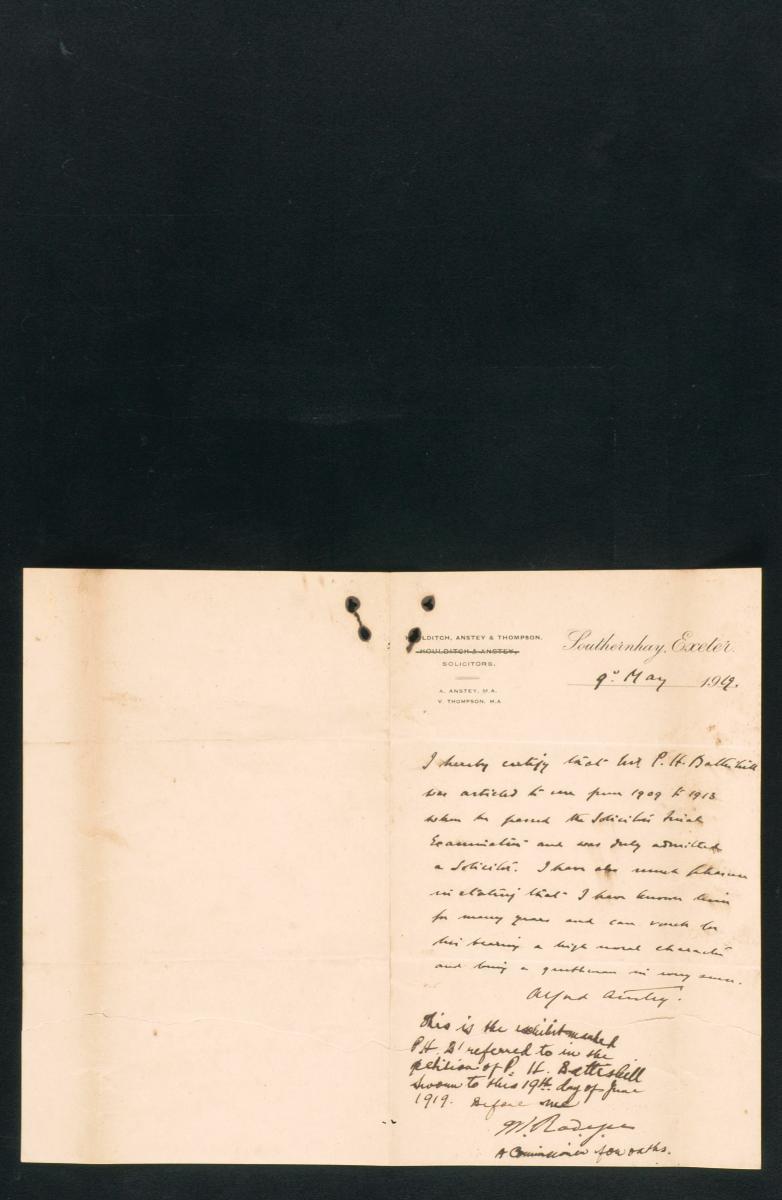 HOULDITCH, ANSTEY & THOMPSON.
HOULDITCH & ANSTEY,
SOLICITORS.
A. ANSTEY, M.A.
V. THOMPSON, M.A.
Southernhay, Exeter.
9º May 1919.
I hereby certify that Mr P. H. Battishill
was articled to me from 1909 to 1913
when he passed the Solicitors Final
Examination and was duly admitted
a Solicitor. I have also much pleasure
in stating that I have known him
for many years and can vouch for
his bearing a high moral character
and being a gentleman in every sense.
Alfred Anstey.
This is the exhibit marked
P.H. B1 referred to in the
petition of P. H. Battishill
Sworn to this 19th day of June
1919. Before me
A Commissioner for oaths.